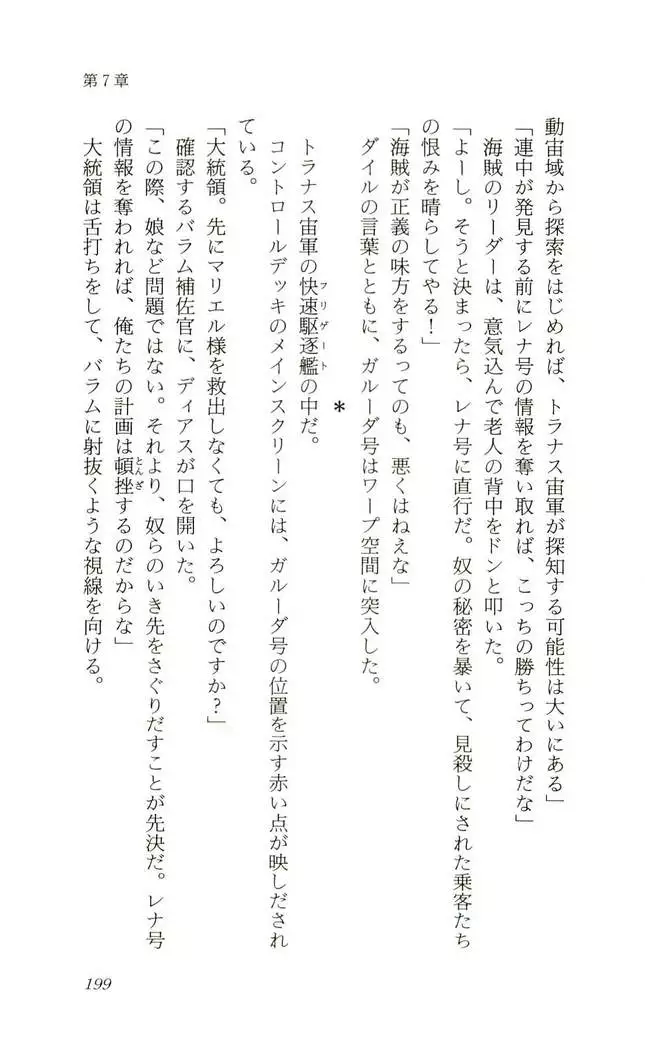 第7章
動宙域から探索をはじめれば、トラナス宙軍が探知する可能性は大いにある」
「連中が発見する前にレナ号の情報を奪い取れば、こっちの勝ちってわけだな」
海賊のリーダーは、意気込んで老人の背中をドンと叩いた。
「よーし。そうと決まったら、レナ号に直行だ。奴の秘密を暴いて、見殺しにされた乗客たち
の恨みを晴らしてやる！」
「海賊が正義の味方をするってのも、悪くはねえな」
ダイルの言葉とともに、ガルーダ号はワープ空間に突入した。
＊
トラナス宙軍の快速駆逐艦の中だ。
フリゲート
コントロールデッキのメインスクリーンには、ガルーダ号の位置を示す赤い点が映しだされ
ている。
「大統領。先にマリエル様を救出しなくても、よろしいのですか？」
確認するバラム補佐官に、ディアスが口を開いた。
「この際、娘など問題ではない。それより、奴らのいき先をさぐりだすことが先決だ。レナ号
の情報を奪われれば、俺たちの計画は頓挫するのだからな」
とんざ
大統領は舌打ちをして、バラムに射抜くような視線を向ける。
199